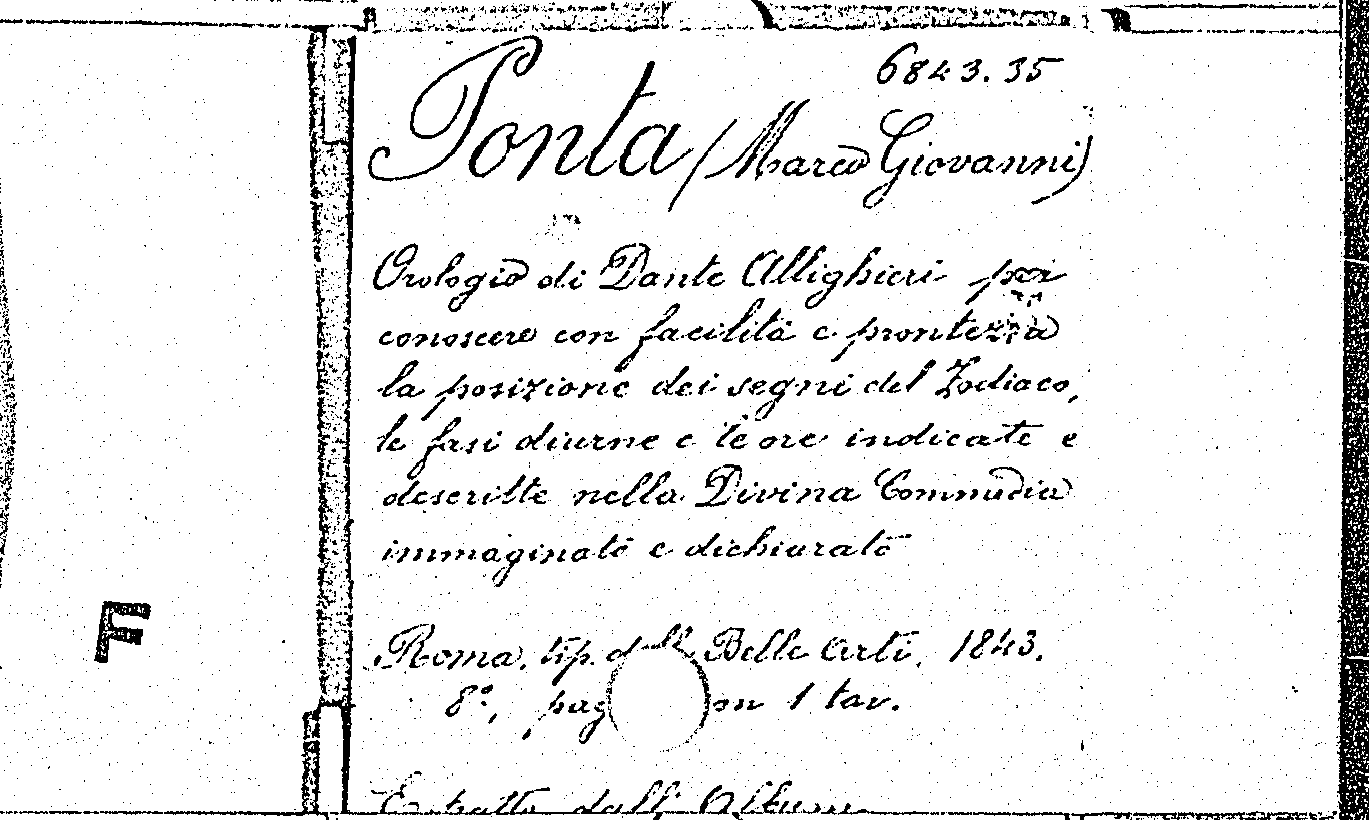 6843.35
Ponta (Marco Giovanni)
Orologio di Dante Allighieri per
conoscere con facilità e prontezza
la posizione dei segni del Zodiaco,
le fasi diurne e le ore indicate e
descritte nella Divina Commedia
immaginato e dichiarato
Roma, tip. delle Belle Arti, 1843.
8°, pag on 1 tav.
Estratto dall' Album
F